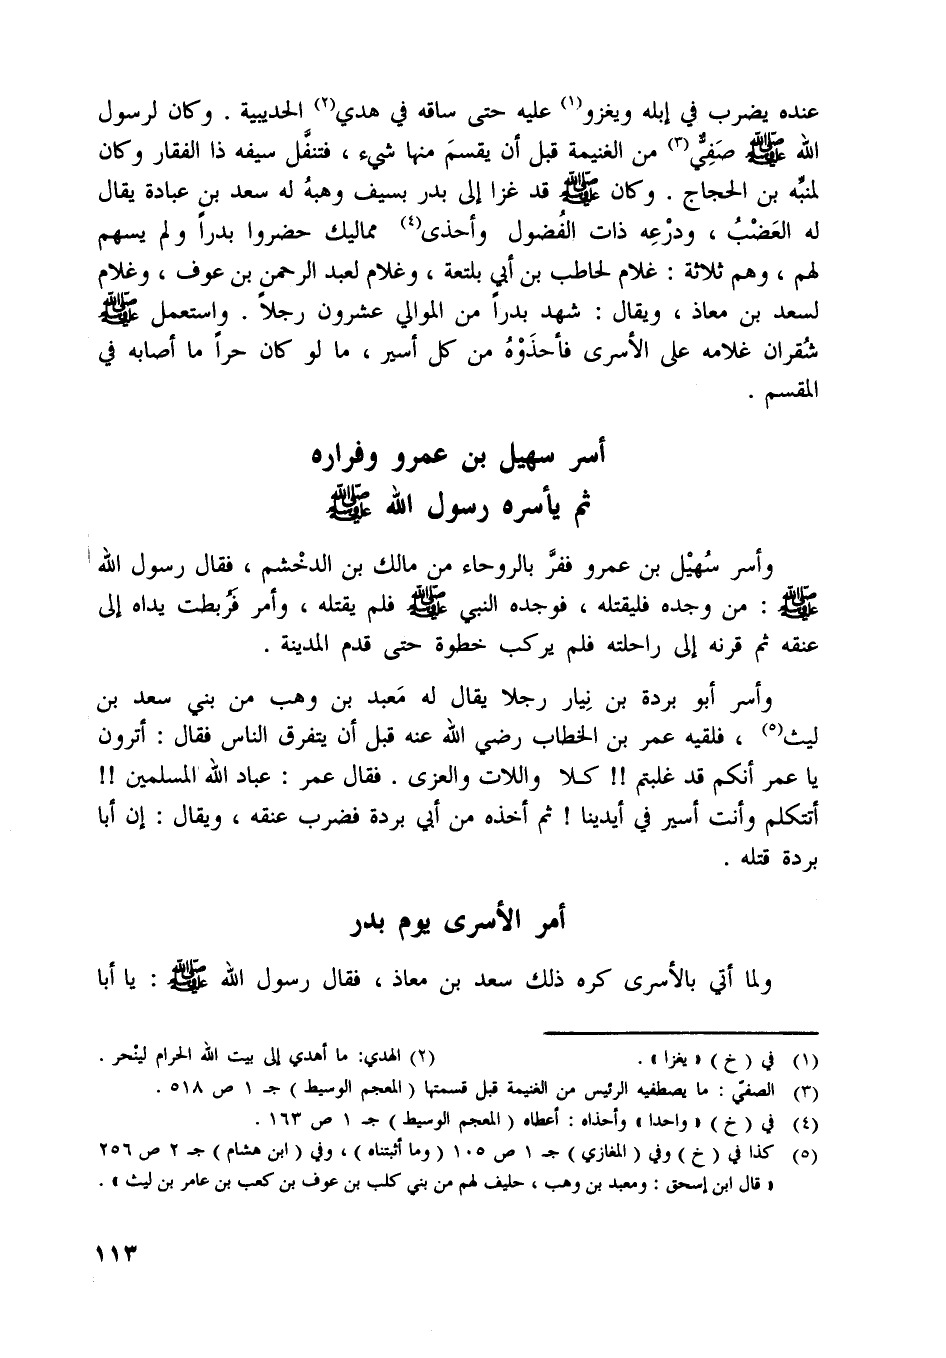 عنده يضرب في إبله ويغزو(١) عليه حتى ساقه في هدي(٢) الحديبية . وكان لرسول
الله ﷺ صَفِيٌّ(٣) من الغنيمة قبل أن يقسمَ منها شيء ، فتنفَّل سيفه ذا الفقار وكان
لمنبِّه بن الحجاج . وكان ﷺ قد غزا إلى بدر بسيف وهبهُ له سعد بن عبادة يقال
له العَضْبُ ، ودرْعِه ذات الفُضول وأحذى(٤) مماليك حضروا بدراً ولم يسهم
لهم ، وهم ثلاثة : غلام لحاطب بن أبي بلتعة ، وغلام لعبد الرحمن بن عوف ، وغلام
لسعد بن معاذ ، ويقال : شهد بدراً من الموالي عشرون رجلاً . واستعمل ﷺ
شُقران غلامه على الأسرى فأحذَوْهُ من كل أسير ، ما لو كان حراً ما أصابه في
المقسم .
أسر سهيل بن عمرو وفراره
ثم يأسره رسول الله ﷺ
وأسر سُهيْل بن عمرو ففرَّ بالروحاء من مالك بن الدخْشم ، فقال رسول الله
ﷺ : من وجده فليقتله ، فوجده النبي ﷺ فلم يقتله ، وأمر فَرُبطت يداه إلى
عنقه ثم قرنه إلى راحلته فلم يركب خطوة حتى قدم المدينة .
وأسر أبو بردة بن نِيار رجلا يقال له مَعبد بن وهب من بني سعد بن
ليث(٥) ، فلقيه عمر بن الخطاب رضي الله عنه قبل أن يتفرق الناس فقال : أترون
يا عمر أنكم قد غلبتم !! كـلا واللات والعزى . فقال عمر : عباد الله المسلمين !!
أتتكلم وأنت أسير في أيدينا ! ثم أخذه من أبي بردة فضرب عنقه ، ويقال : إن أبا
بردة قتله .
أمر الأسرى يوم بدر
ولما أتي بالأسرى كره ذلك سعد بن معاذ ، فقال رسول الله ﷺ : يا أبا
(١) في ( خ ) « يغزا » . (٢) الهدي: ما أهدي إلى بيت الله الحرام لينْحر .
(٣) الصفيّ : ما يصطفيه الرئيس من الغنيمة قبل قسمتها ( المعجم الوسيط ) جـ ١ ص ٥١٨ .
(٤) في ( خ ) « واحدا » وأحذاه : أعطاه ( المعجم الوسيط ) جـ ١ ص ١٦٣ .
(٥) كذا في ( خ ) وفي ( المغازي ) جـ ١ ص ١٠٥ ( وما أثبتناه ) ، وفي ( ابن هشام ) جـ ٢ ص ٢٥٦
« قال ابن إسحق : ومعبد بن وهب ، حليف لهم من بني كلب بن عوف بن كعب بن عامر بن ليث » .
١١٣